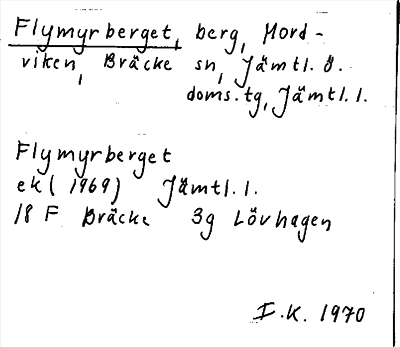 Flymyrberget, berg, Mord-
viken, Bräcke sn, Jämtl. ö.
doms.tg, Jämtl.l.
Flymyrberget
ek (1969) Jämtl.l.
18 F Bräcke 3g Lövhagen
I.K. 1970